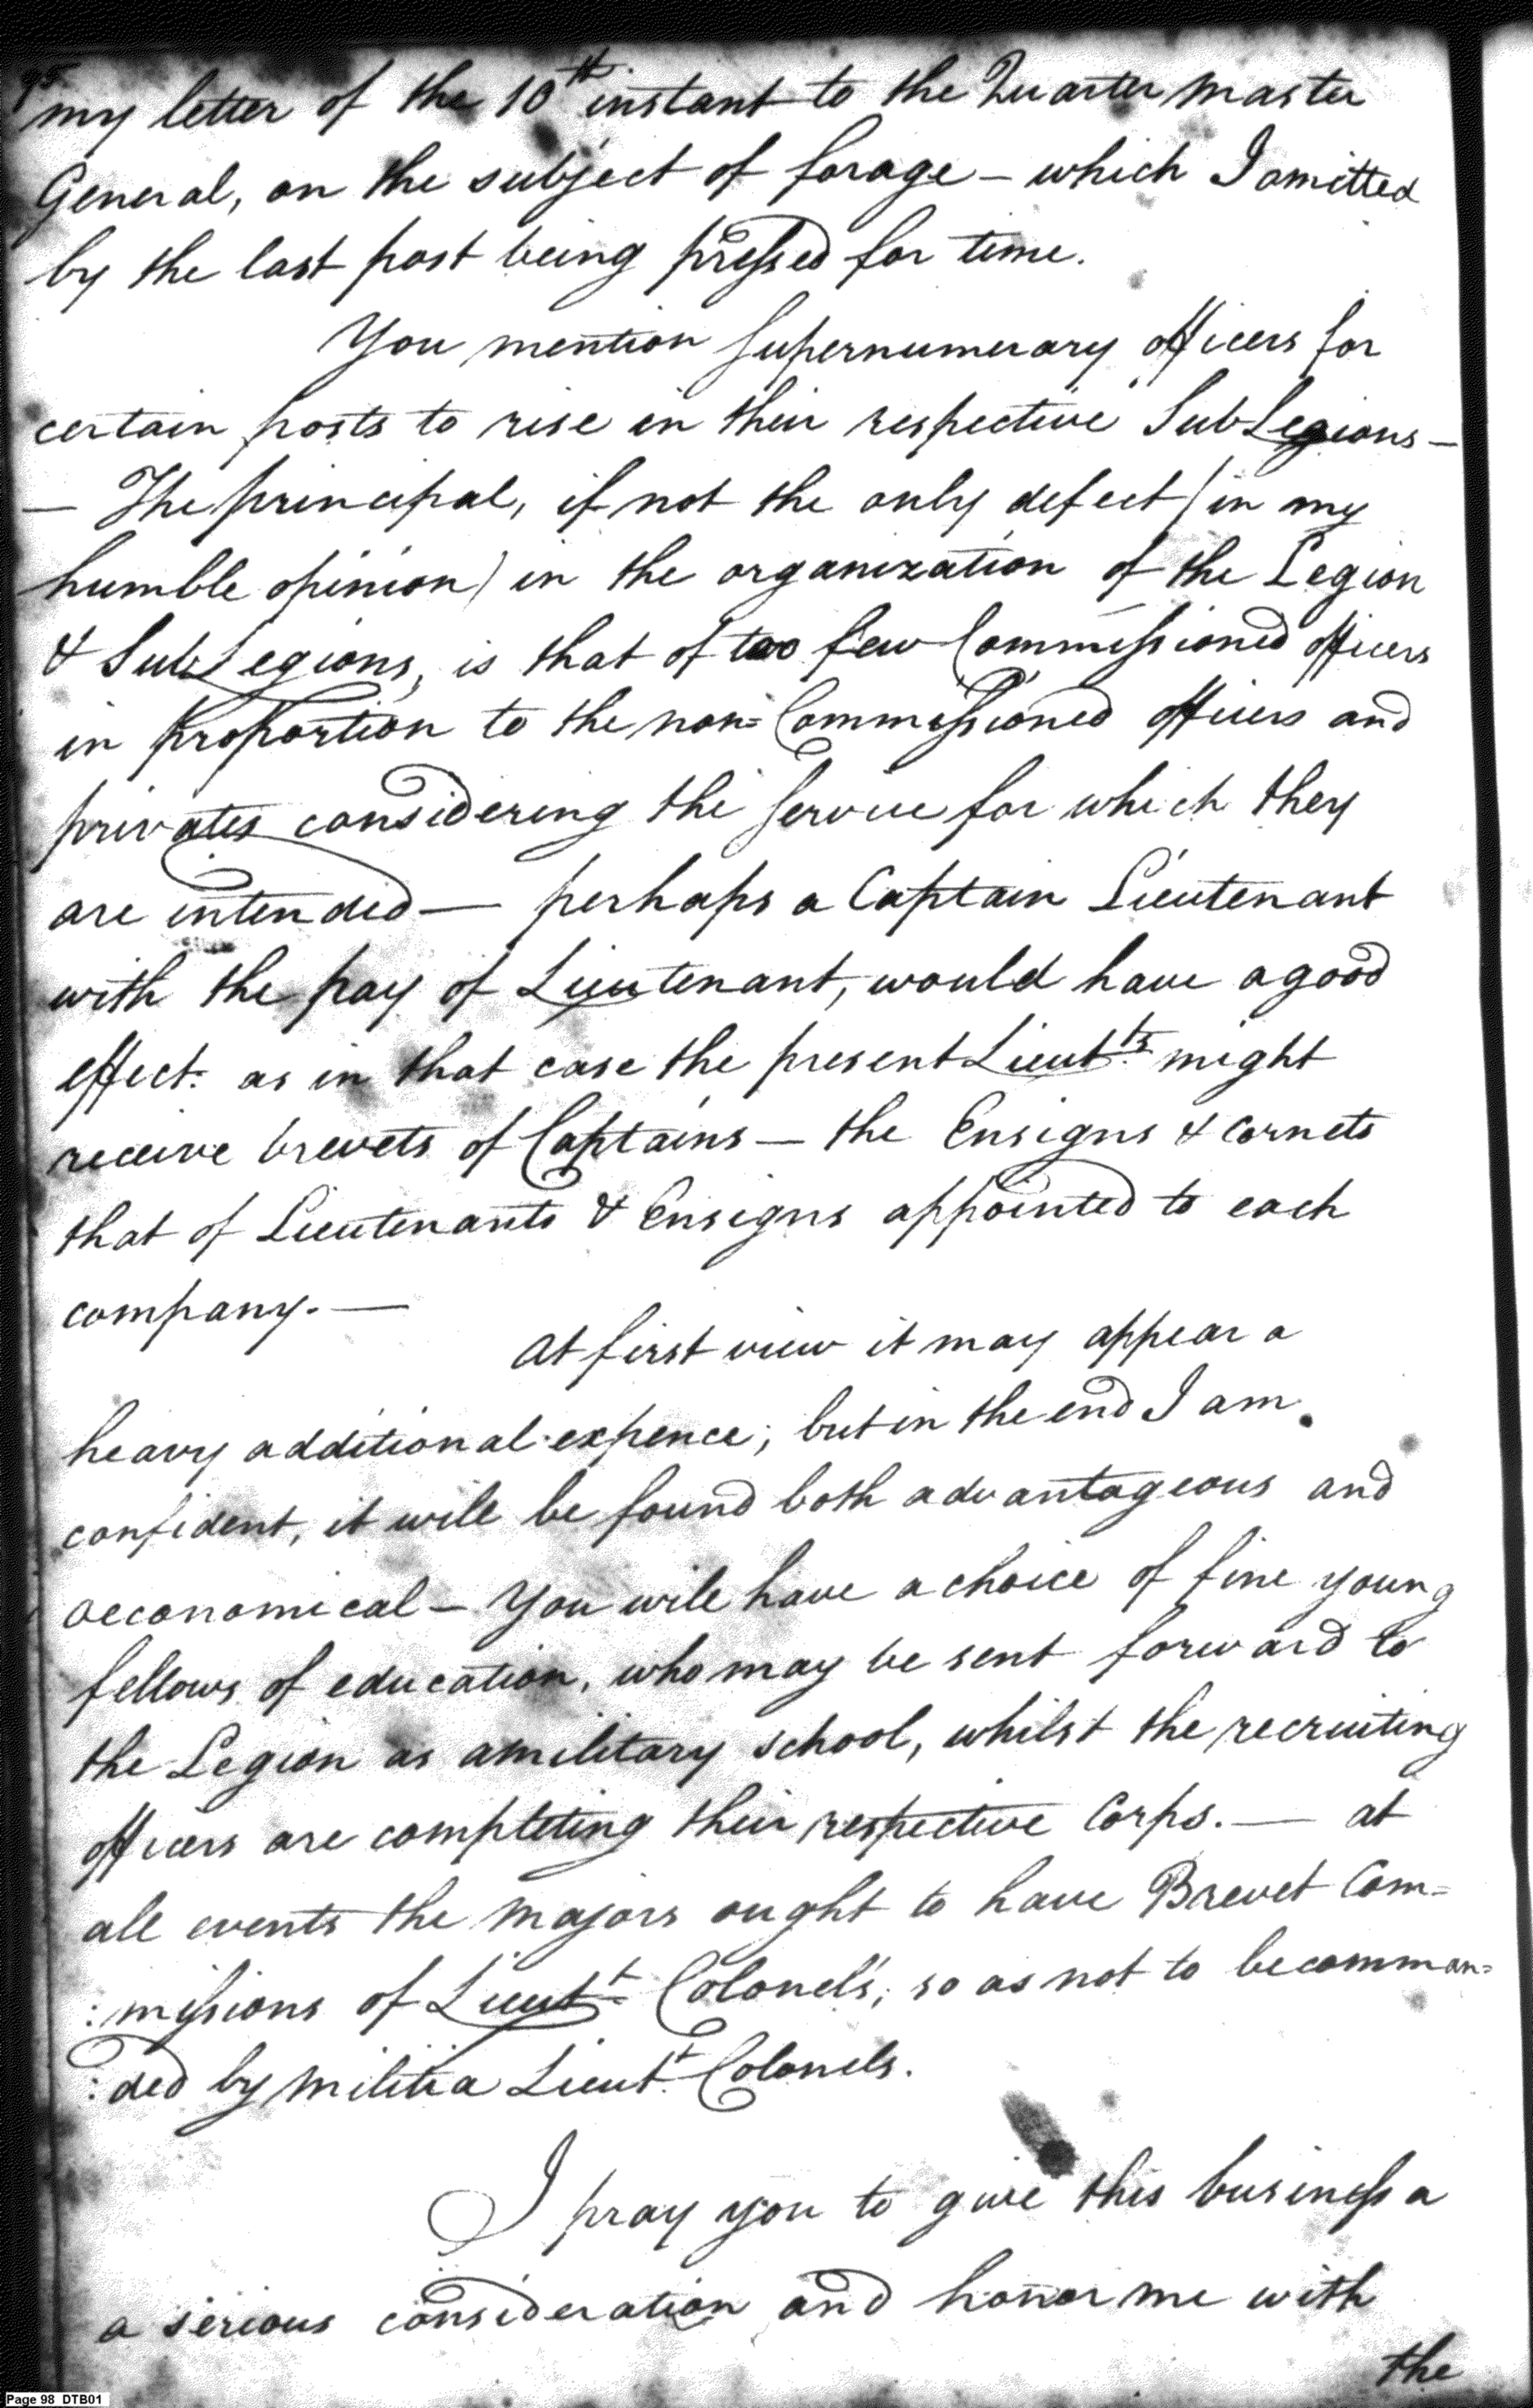 95
my letter of the 10th instant to the Quarter Master
General, on the subject of forage – which I omitted
by the last post being pressed for time.
You mention Supernumerary officers for
certain posts to rise in their respective SubLegions –
– The principal, if not the only defect (in my
humble opinion) in the organization of the Legion
& SubLegions, is that of too few Commissioned officers
in proportion to the non=Commissioned officers and
privates considering the Service for which they
are intended — perhaps a Captain Lieutenant
with the pay of Lieutenant, would have a good
effect: as in that case the present Lieutts. might
receive brevets of Captains — the Ensigns & Cornets
that of Lieutenants & Ensigns appointed to each
company. —
At first view it may appear a
heavy additional expence; but in the end I am
confident, it will be found both advantageous and
oeconomical – You will have a choice of fine young
fellows of education, who may be sent forward to
the Legion as a military school, whilst the recruiting
officers are completing their respective Corps. — at
all events the Majors ought to have Brevet Com=
:missions of Lieutt. Colonels, so as not to be comman=
:ded by Militia Lieutt. Colonels.
I pray you to give this business a
a serious consideration and honor me with
the
Page 98 DTB01